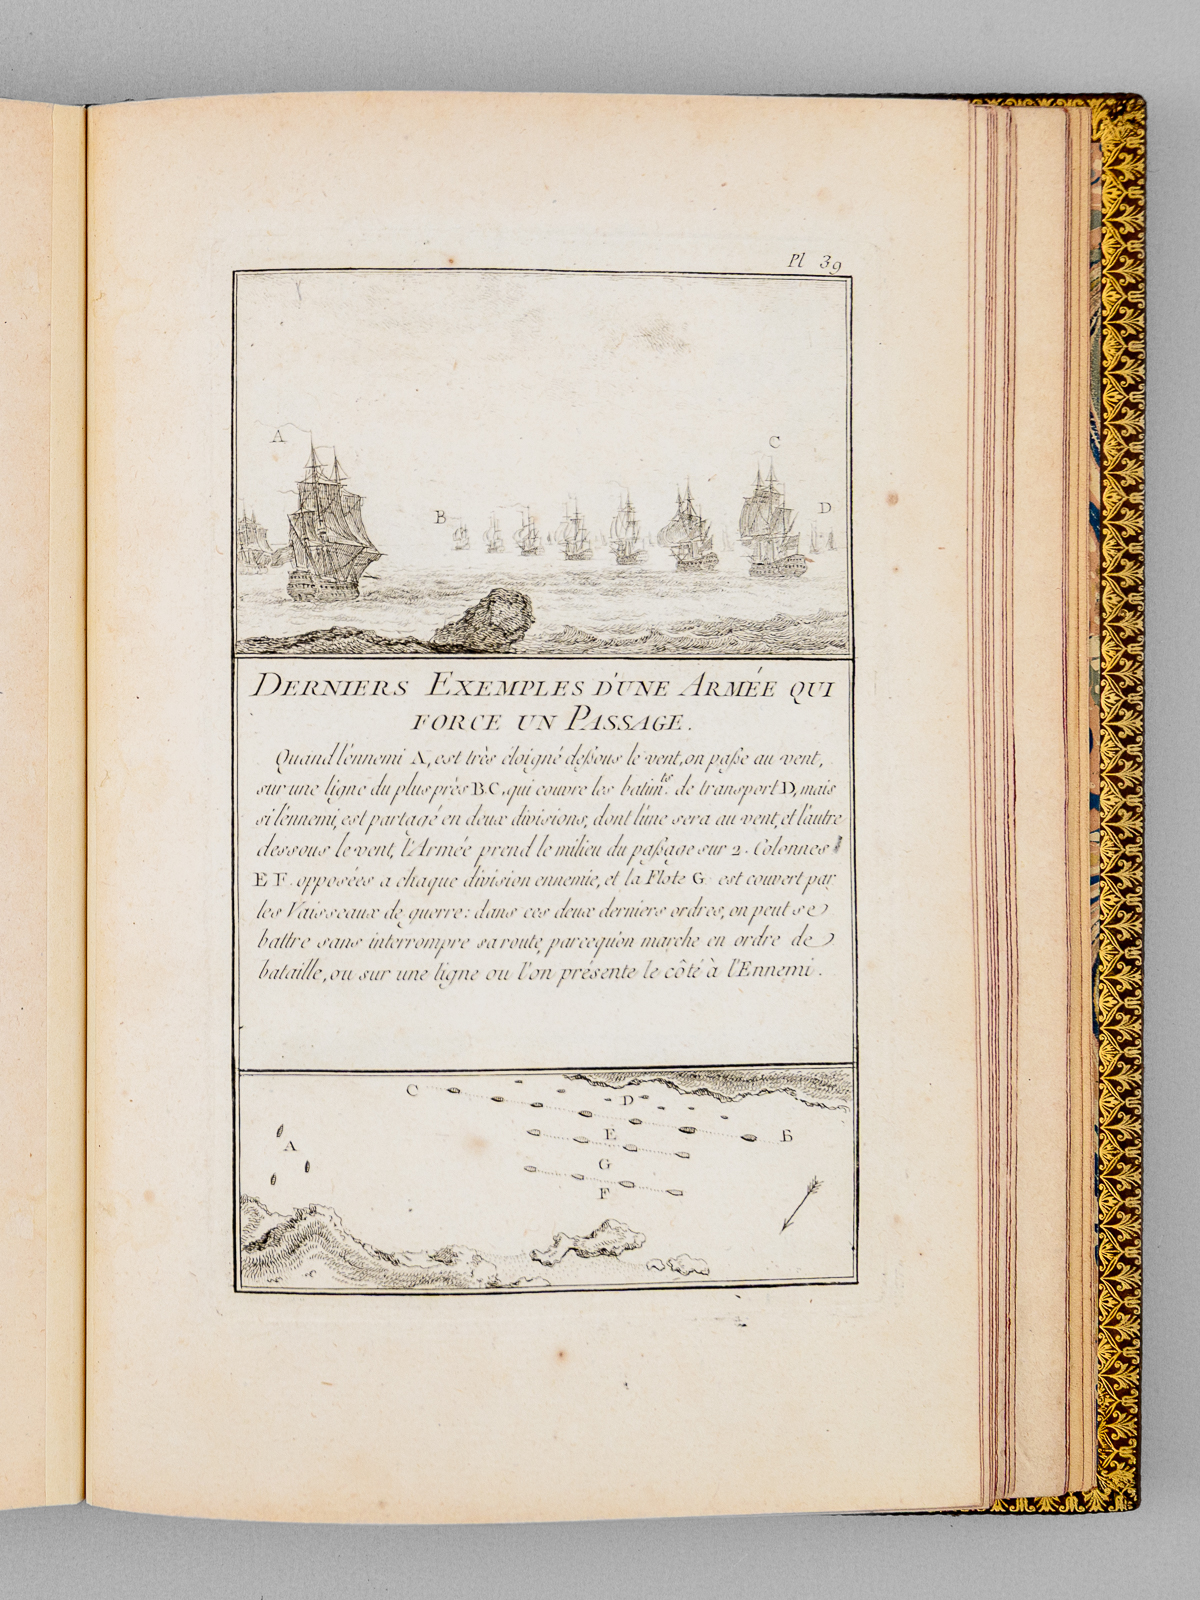 Pl 39
A
C
B
D
DERNIERS EXEMPLES D'UNE ARMÉE QUI
FORCE UN PASSAGE.
Quand l'ennemi A, est très éloigné dessous le vent, on passe au vent,
sur une ligne du plus près B.C, qui couvre les batim.ts de transport D, mais
si l'ennemi, est partagé en deux divisions, dont l'une sera au vent, et l'autre
dessous le vent, l'Armée prend le milieu du passage sur 2. Colonnes
E F. opposées a chaque division ennemie, et la Flote G est couvert par
les Vaisseaux de guerre: dans ces deux derniers ordres, on peut se
battre sans interrompre sa route, parcequ'on marche en ordre de
bataille, ou sur une ligne ou l'on présente le côté à l'Ennemi.
C
D
E
B
A
G
F